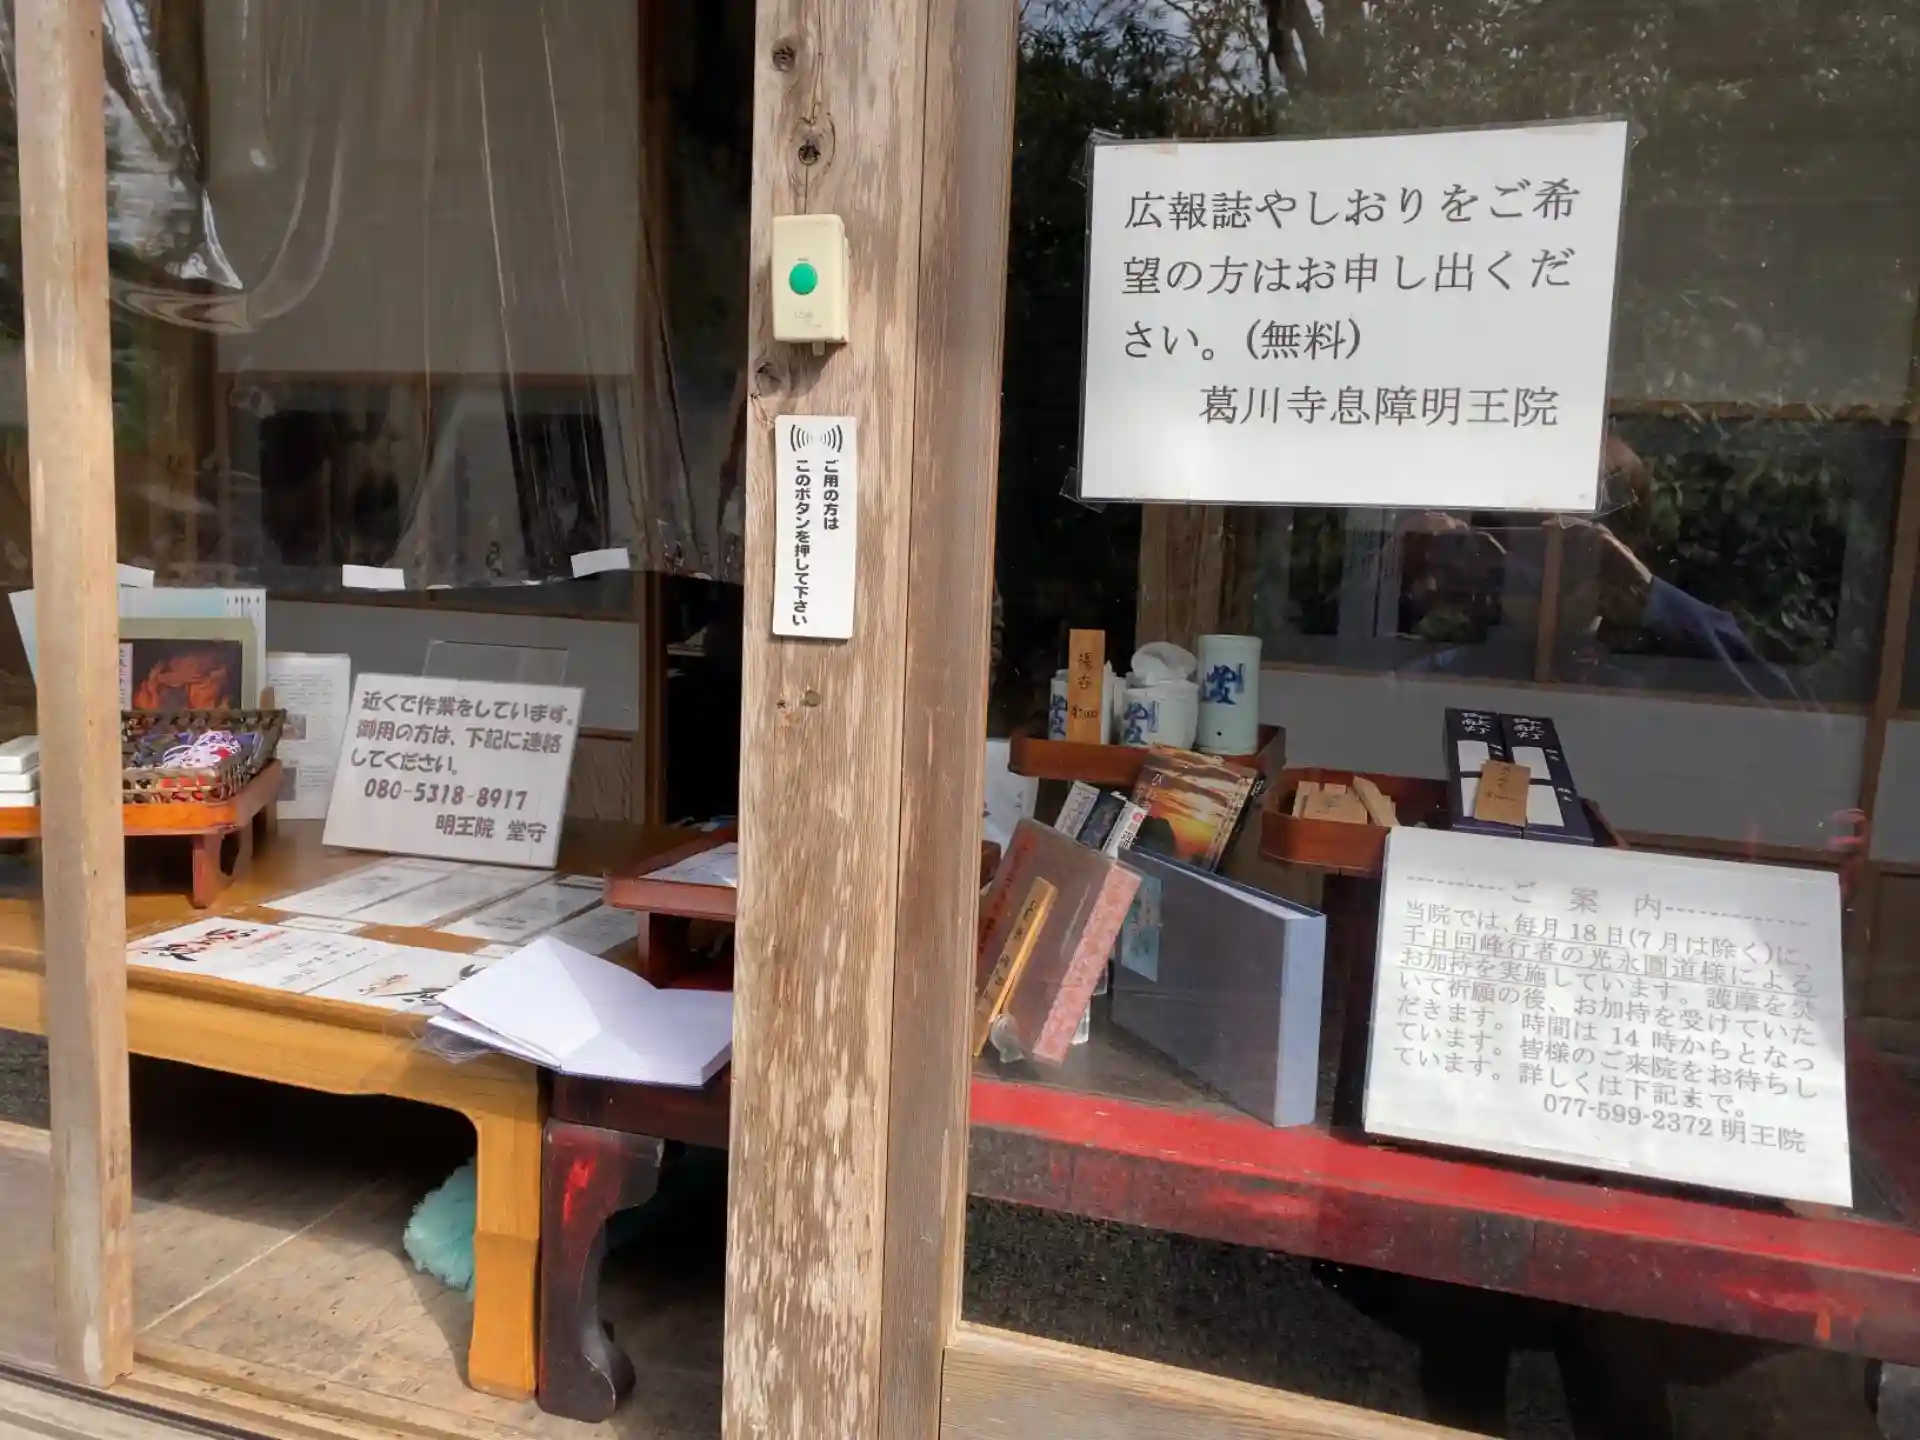 広報誌やしおりをご希
望の方はお申し出くだ
さい。(無料)
葛川寺息障明王院
ご用の方は
このボタンを押して下さい
近くで作業をしています。
御用の方は、下記に連絡
してください。
080-5318-8917
明王院 堂守
湯呑
御献灯
御献灯
----------ご 案 内--------------
当院では、毎月18日(7月は除く)に、
千日回峰行者の光永圓道様による
お加持を実施しています。護摩を焚
いて祈願の後、お加持を受けていた
だきます。時間は 14 時からとなっ
ています。皆様のご来院をお待ちし
ています。詳しくは下記まで。
077-599-2372 明王院